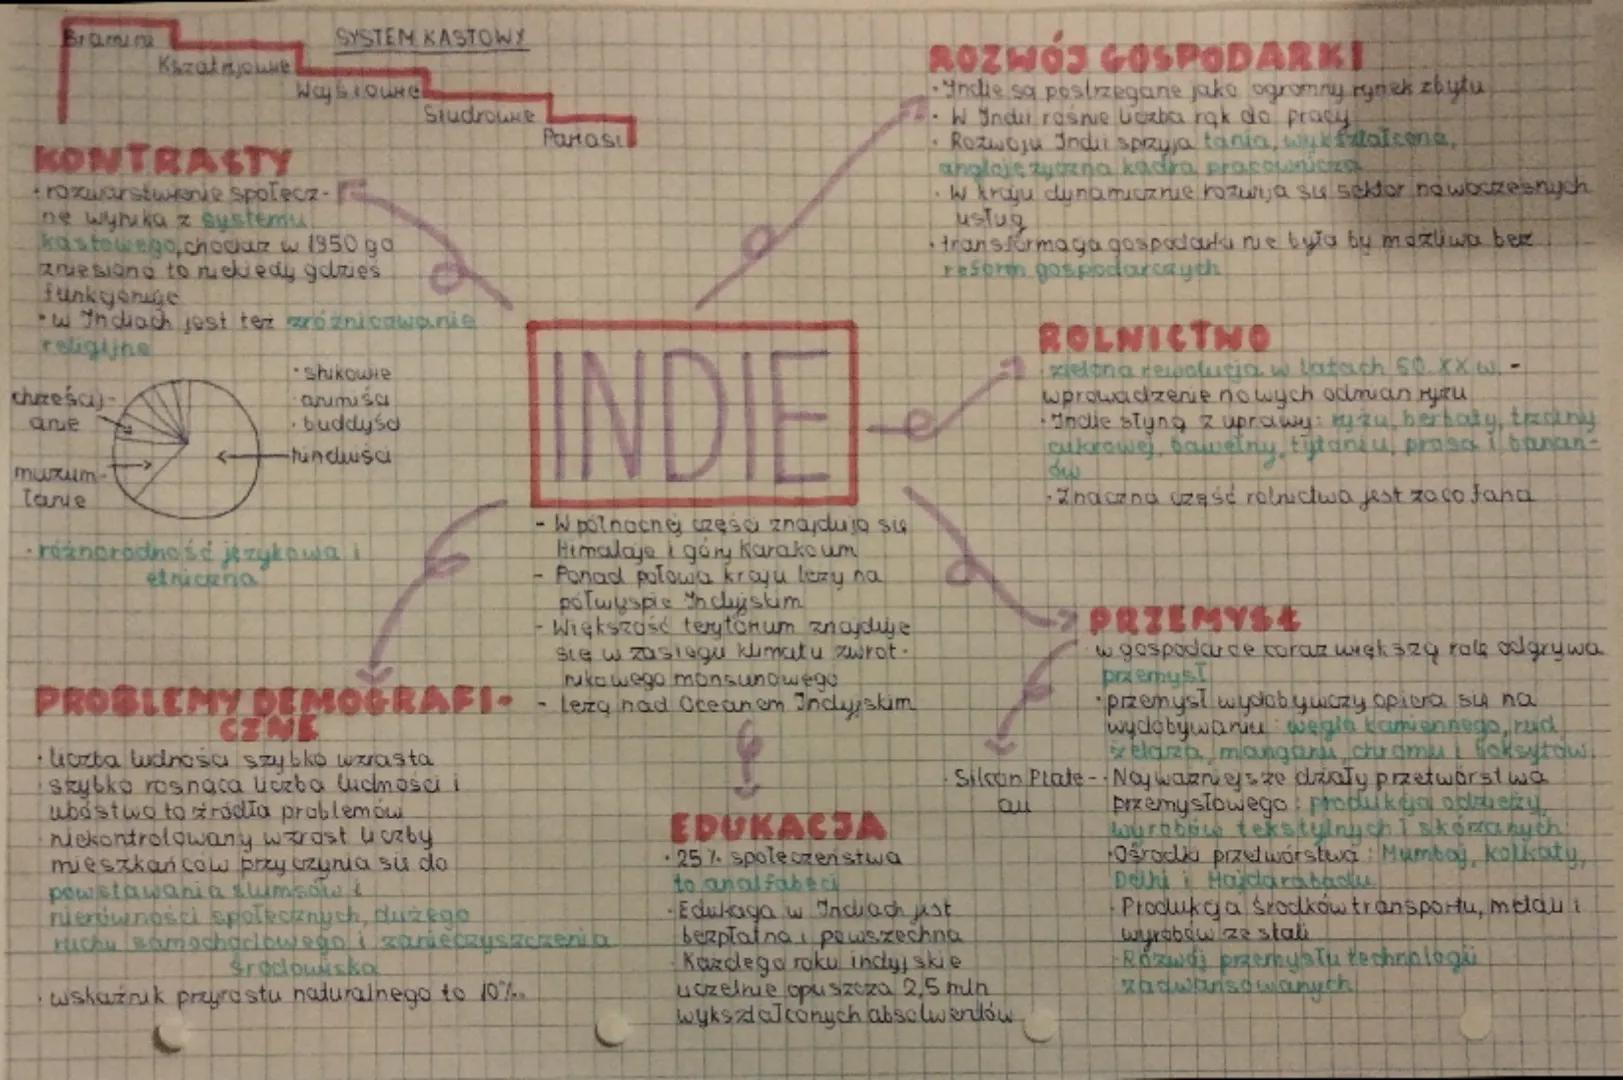 SYSTEM KASTOWY
Bramini
Kszatrijowie
Wajśiowie
Siudrowie
Pariasi
KONTRASTY
• rozwarstwienie społecz-
ne wynika z systemu
kastowego, chociaż w 1950 go
zniesiono to niekiedy gdzieś
funkcjonuje
• w Indiach jest też zróżnicowanie
religijne
chrześcij-
anie
muzum-
łanie
• sikhowie
• animiści
• buddyści
hinduiści
• różnorodność językowa i
etniczna
PROBLEMY DEMOGRAFI-
CZNE
• liczba ludności szybko wzrasta
• szybko rosnąca liczba ludności i
ubóstwo to źródła problemów
• niekontrolowany wzrost liczby
mieszkańców przyczynia się do
powstawania slumsów i
nierówności społecznych, dużego
ruchu samochodowego i zanieczyszczenia
środowiska
• wskaźnik przyrostu naturalnego to 10‰
INDIE
- W północnej części znajdują się
Himalaje i góry Karakoum
- Ponad połowa kraju leży na
półwyspie Indyjskim
- Większość terytorium znajduje
się w zasięgu klimatu zwrot-
nikowego monsunowego
- leżą nad Oceanem Indyjskim
EDUKACJA
• 25% społeczeństwa
to analfabeci
• Edukacja w Indiach jest
bezpłatna i powszechna
• Każdego roku indyjskie
uczelnie opuszcza 2,5 mln
wykształconych absolwentów
ROZWÓJ GOSPODARKI
• Indie są postrzegane jako ogromny rynek zbytu
• W Indii rośnie liczba rąk do pracy
• Rozwoju Indii sprzyja tania, wykształcona,
anglojęzyczna kadra pracownicza
• w kraju dynamicznie rozwija się sektor nowoczesnych
usług
• transformacja gospodarki nie była by możliwa bez
reform gospodarczych
ROLNICTWO
• zielona rewolucja w latach 60. XX w. -
wprowadzenie nowych odmian ryżu
• Indie słyną z uprawy: ryżu, herbaty, trzciny
cukrowej, bawełny, tytoniu, prosa i banan-
ów
• Znaczna część rolnictwa jest zacofana
PRZEMYSŁ
• w gospodarce coraz większą rolę odgrywa
przemysł
• przemysł wydobywczy opiera się na
wydobywaniu: węgla kamiennego, rud
żelaza, manganu, chromu i boksytów
Silicon Plate-
au
• Najważniejsze działy przetwórstwa
przemysłowego: produkcja odzieży,
wyrobów tekstylnych i skórzanych
• Ośrodki przetwórstwa: Mumbaj, Kolkaty,
Delhi i Hajdarabadu
• Produkcja środków transportu, metali i
wyrobów ze stali
• Rozwój przemysłu technologii
zadwansowanych